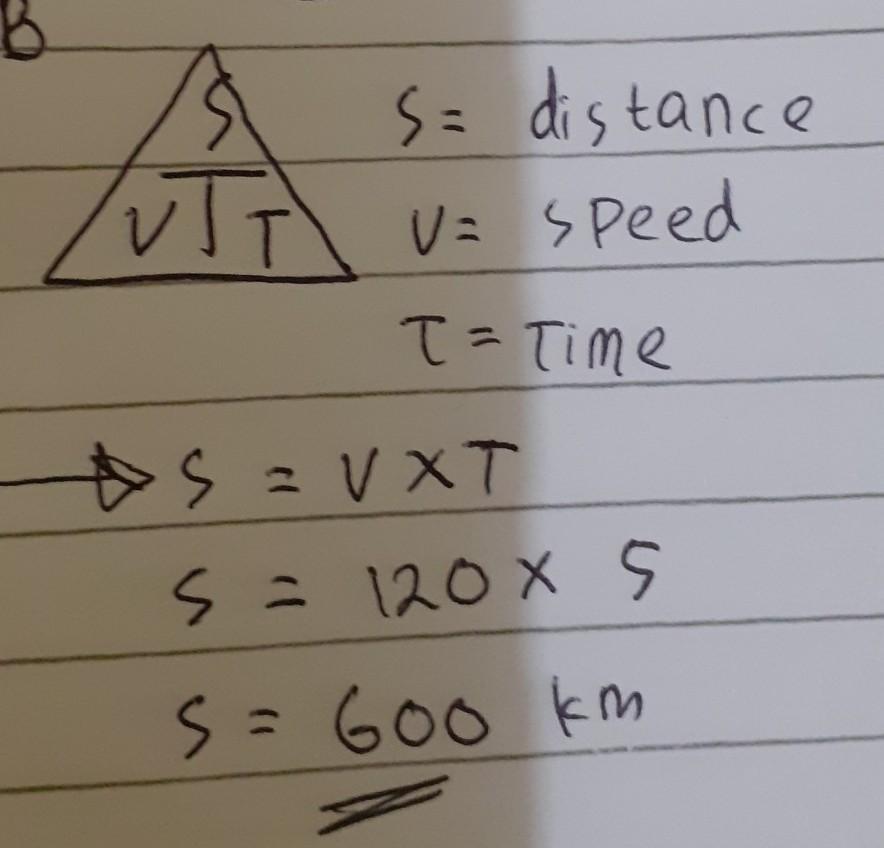 B
S
V T
S = distance
V = speed
T = Time
S = V x T
S = 120 x 5
S = 600 km